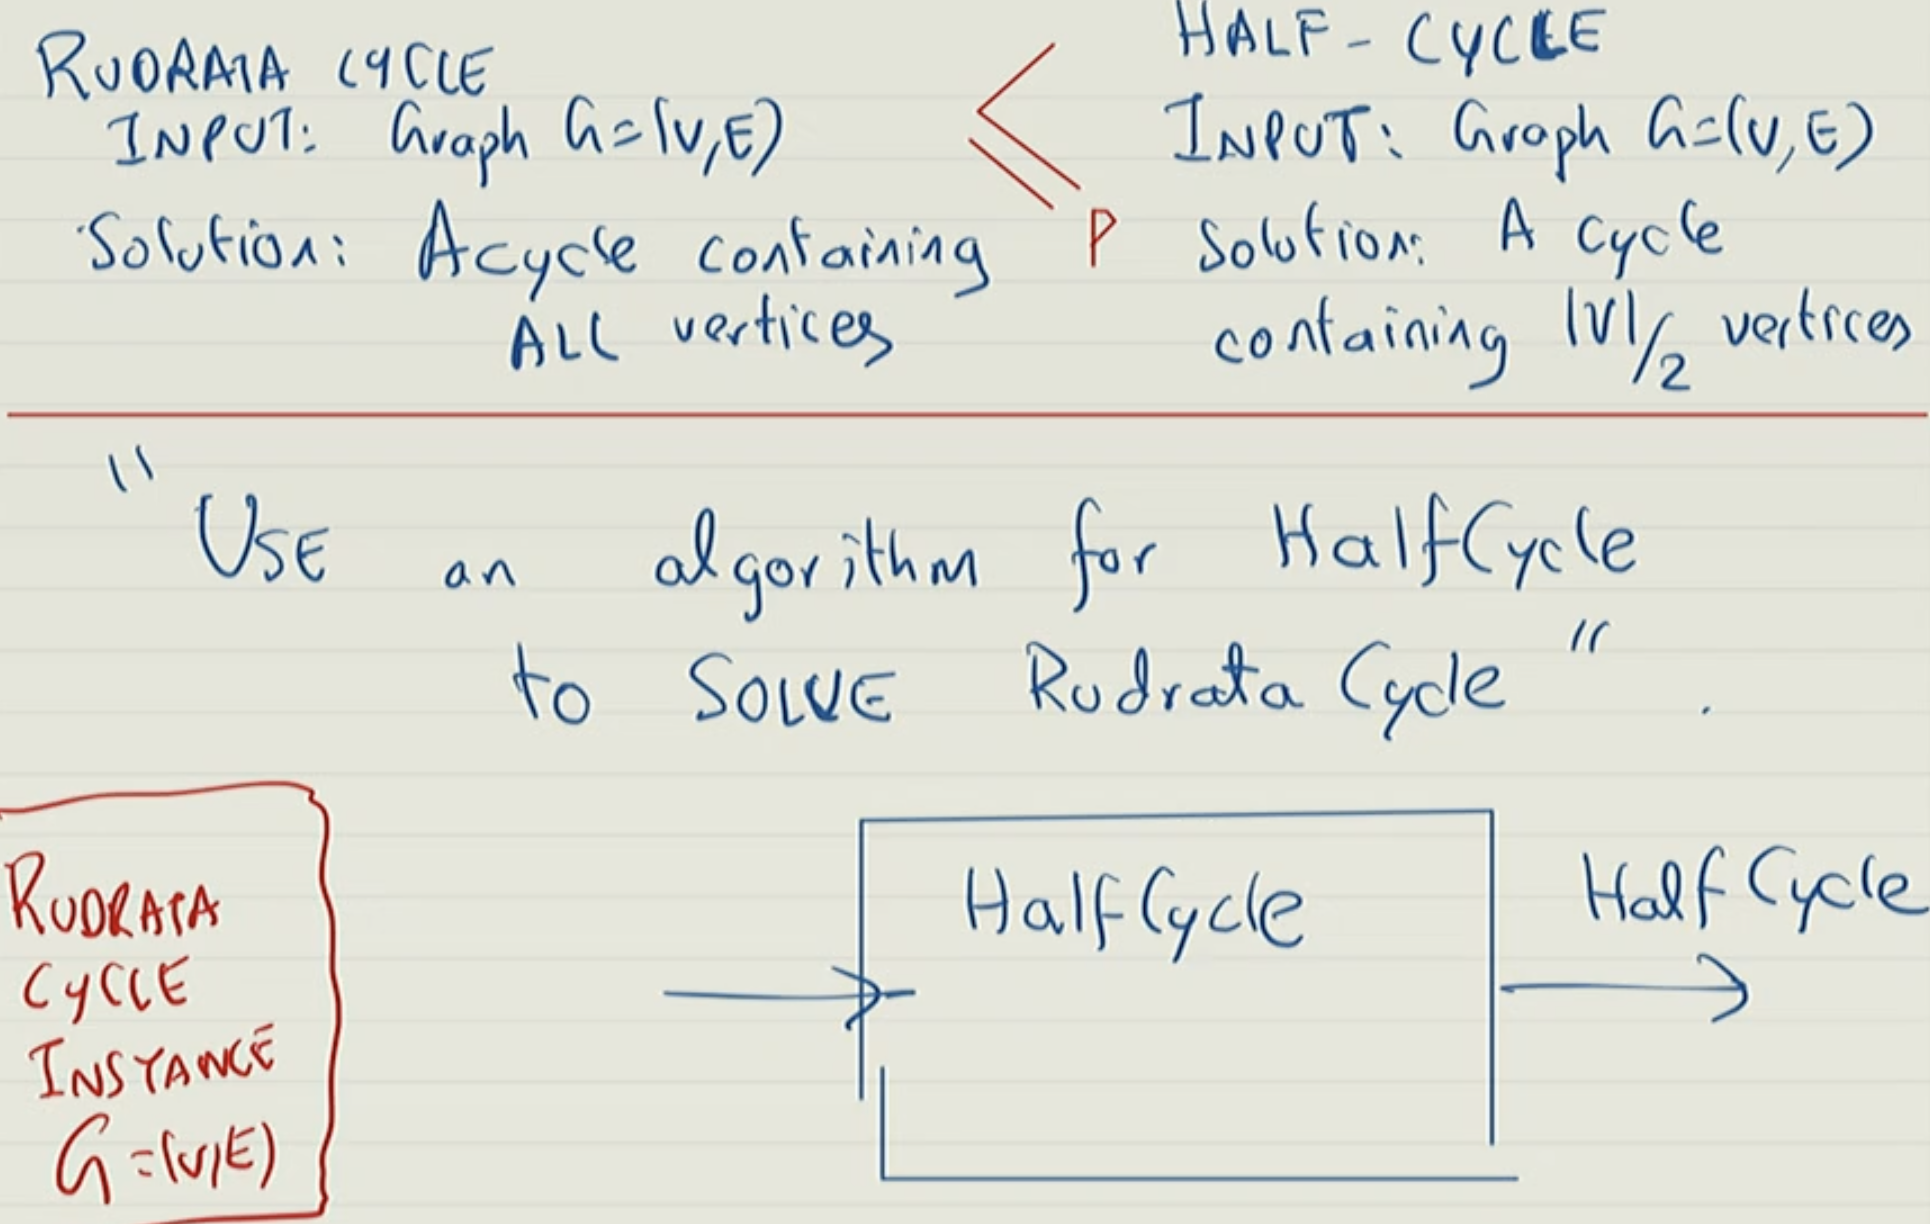 RUDRATA CYCLE
INPUT: Graph G=(V,E)
Solution: A cycle containing
ALL vertices
≤P
HALF-CYCLE
INPUT: Graph G=(V,E)
Solution: A cycle
containing |V|/2 vertices
"USE an algorithm for HalfCycle
to SOLVE Rudrata Cycle".
RUDRATA
CYCLE
INSTANCE
G=(V,E)
HalfCycle
HalfCycle